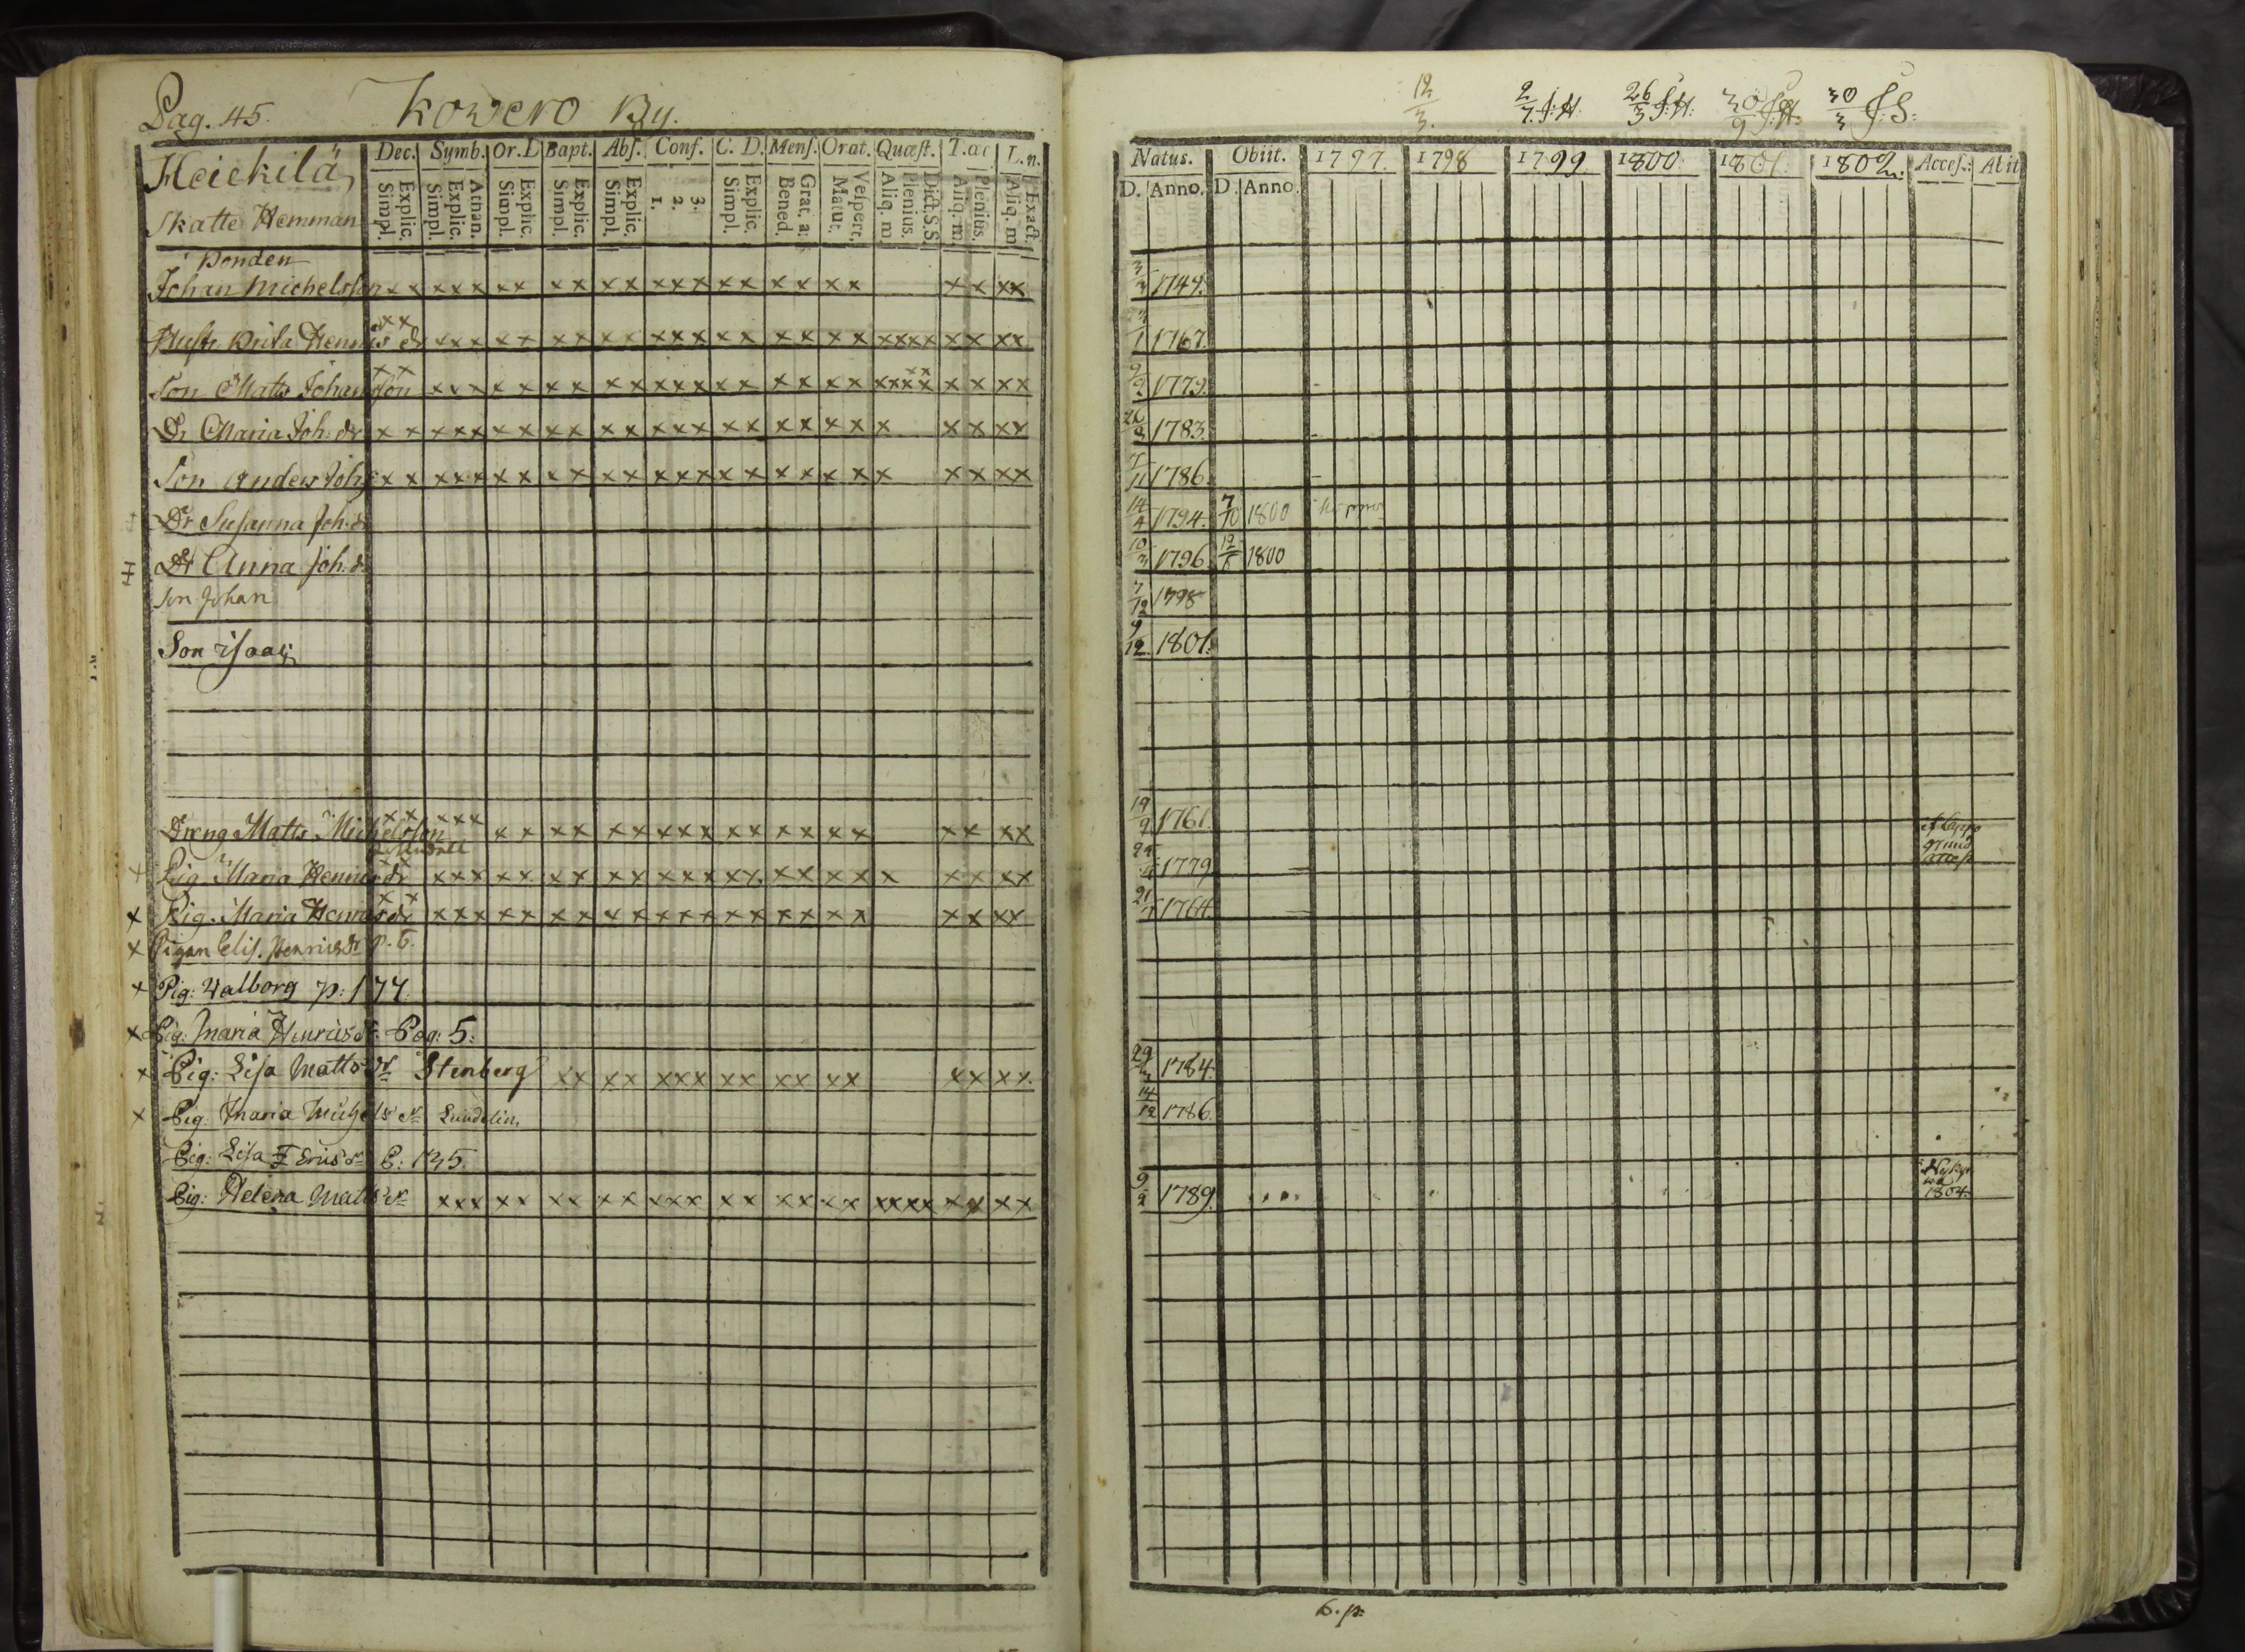 Pag. 45. Kowero By.
Heickilä
Skatte Hemman
Dec. Symb. Or. D Bapt. Abs. Conf. C. D. Mens. Orat. Quæst. T. ac L. n.
Simpl. Explic. Simpl. Explic. Athan. Simpl. Explic. Simpl. Explic. Simpl. Explic. 1. 2. 3. Simpl. Explic. Bened. Grat. a: Matut. Vesperr. Aliq. m Plenius. Dict. S.S. Aliq. m. Plenius. Aliq. m Exact.
Bonden
Johan Michelsson xx xxx xx xx xx xxx xx xx xx xx xx
Hustr. Brita Henrics dr xx xxx xx xx xx xxx xx xx xx xxxx xx xx
Son Matts Johansson xx xxx xx xx xx xxx xx xx xx xxxx xx xx xx
Dr Maria Joh: dr xx xxx xx xx xx xxx xx xx xx x xx xx
Son Anders Johs xx xxx xx xx xx xxx xx xx xx x xx xx
Dr Susanna Joh. dr
Dr Anna Joh. dr
Son Johan
Son Isaac
Dreng Matts Michelsson xx xxx xx xx xx xxx xx xx xx xx xx
x Pig. Maria Henrics dr xx xxx xx xx xx xxx xx xx xx x xx xx
x Pig. Maria Henrics dr xx xxx xx xx xx xxx xx xx xx xx xx
x Pigan Elis. Henrics dr p. 6.
x Pig: Valborg p: 177.
x Pig: Maria Henrics dr. Pag: 5:
x Pig: Lisa Matts dr Stenberg xx xx xxx xx xx xx xx xx
x Pig: Maria Michels dr Lundelin
Pig: Lisa Erics dr P: 135.
Pig: Helena Matts dr xxx xx xx xx xxx xx xx xx xxxx xx xx
12/3. 2/7. J:H. 26/3 J:H: 30/9 J:H. 30/3 J:S:
Natus. Obiit. 1797. 1798 1799. 1800. 1801. 1802. Acces.: Abit
D. Anno. D. Anno.
1747.
1767.
1779.
1783.
1786.
14/4 1794. 7/10 1800
10/3 1796 1800
7/12 1798
9/12 1801.
19/9 1761.
1779
1764.
1784.
14/12 1786.
9/2 1789.
1804.
6. p: